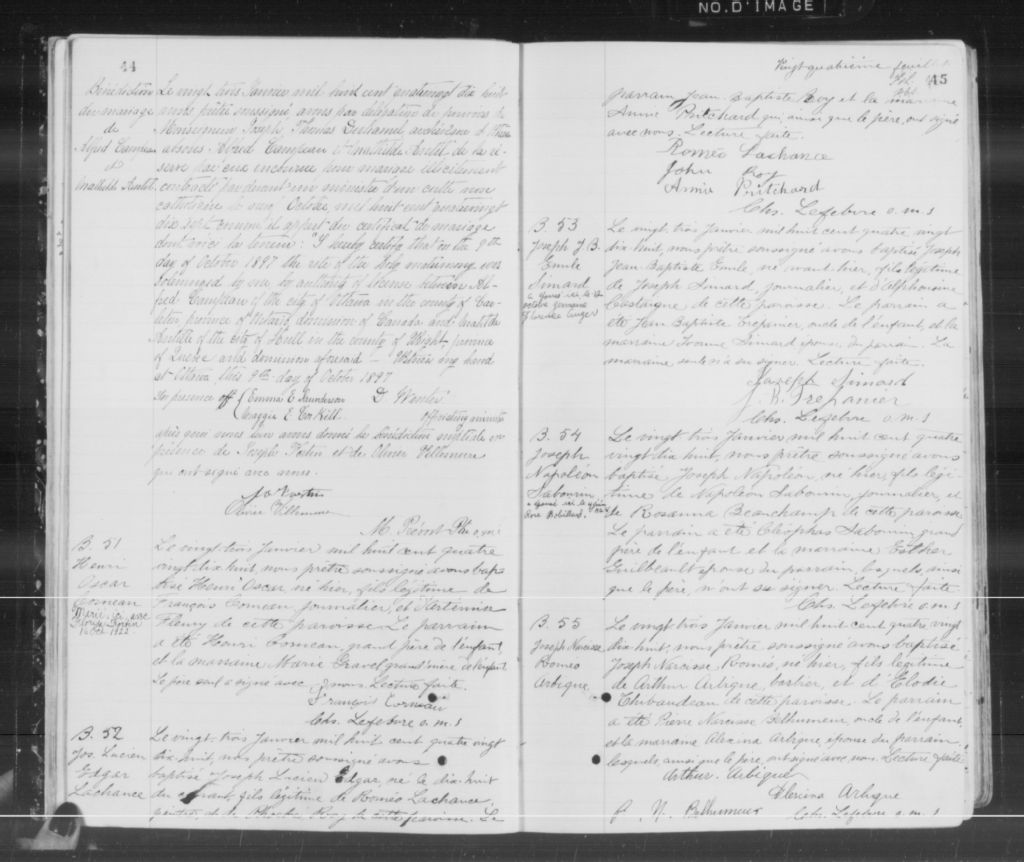 NO. D'IMAGE
44
Bénédiction
du mariage
de
Alfred Campeau
et
Mathilde Autel
Le vingt trois Janvier mil huit cent quatre vingt dix huit
nous prêtre soussigné avons par délégation de pouvoirs de
Monseigneur Joseph Thomas Duhamel archevêque d'Ottawa
absous Alfred Campeau et Mathilde
contracté par devant un ministre d'un culte non
catholique le neuf Octobre mil huit cent quatre vingt
dix sept comme il appert du certificat de mariage
dont voici la teneur: "I hereby certify that on the 9th
day of October 1897 the rite of the Holy matrimony was
solemnized by me, by authority of license between Al-
fred Campeau of the city of Ottawa in the county of Car-
leton province of Ontario, dominion of Canada and Matilda
of the city of Hull in the county of Wright province
of Quebec and dominion aforesaid — Witness my hand
at Ottawa this 9th day of October 1897
In presence off Emma E. Saunderson
Maggie E
officiating minister
après quoi nous leur avons donné la bénédiction nuptiale en
présence de Joseph Fortin et de Olivier Bellhumeur
qui ont signé avec nous.
Olivier Bellhumeur
B. 51
Henri
Oscar
Comeau
Marié ici avec
Le vingt trois Janvier mil huit cent quatre
vingt dix huit, nous prêtre soussigné avons bap-
tisé Henri Oscar, né hier, fils légitime de
François Comeau, journalier, et d'Artémise
Fleury de cette paroisse. Le parrain
a été Henri Comeau, grand père de l'enfant,
et la marraine Marie Gravel grand'mère de l'enfant
Le père seul a signé avec nous. Lecture faite.
François Comeau
Chs. Lefebvre o.m.i
B. 52
Jos. Lucien
Edgar
Lachance
Le vingt trois Janvier mil huit cent quatre vingt
dix huit, nous prêtre soussigné avons
baptisé Joseph Lucien Edgar, né le dix huit
du courant, fils légitime de Roméo Lachance,
de cette paroisse. Le
Vingt quatrième feuillet
45
parrain Jean Baptiste Roy et la marraine
Annie Pritchard qui, ainsi que le père, ont signé
avec nous. Lecture faite.
Roméo Lachance
John Roy
Annie Pritchard
Chs. Lefebvre o.m.i
B. 53
Joseph J. B.
Emile
Simard
Le vingt trois Janvier mil huit cent quatre vingt
dix huit, nous prêtre soussigné avons baptisé Joseph
Jean Baptiste Emile, né avant hier, fils légitime
de Joseph Simard, journalier, et d'Alphonsine
de cette paroisse. Le parrain a
été Jean Baptiste Trépanier, oncle de l'enfant, et la
marraine Simard épouse du parrain. La
marraine seule n'a su signer. Lecture faite.
Joseph Simard
J. B. Trepanier
Chs. Lefebvre o.m.i
B. 54
Joseph
Napoléon
Sabourin
Le vingt trois Janvier mil huit cent quatre
vingt dix huit, nous prêtre soussigné avons
baptisé Joseph Napoléon, né hier, fils légi-
time de Napoléon Sabourin, journalier, et
de Rosanna Beauchamp de cette paroisse
Le parrain a été Cléophas Sabourin grand
père de l'enfant et la marraine Esther
Guilbeault épouse du parrain, lesquels, ainsi
que le père, n'ont su signer. Lecture faite.
Chs. Lefebvre o.m.i
B. 55
Joseph Narcisse
Roméo
Arbique
Le vingt trois Janvier mil huit cent quatre vingt
dix huit, nous prêtre soussigné avons baptisé
Joseph Narcisse, Roméo, né hier, fils légitime
de Arthur Arbique, barbier, et d'Elodie
Thibaudeau de cette paroisse. Le parrain
a été Pierre Narcisse Bellhumeur, oncle de l'enfant,
et la marraine Alexina Arbique, épouse du parrain
lesquels, ainsi que le père, ont signé avec nous. Lecture faite
Arthur Arbique
Alexina Arbique
P. N. Bellhumeur
Chs. Lefebvre o.m.i